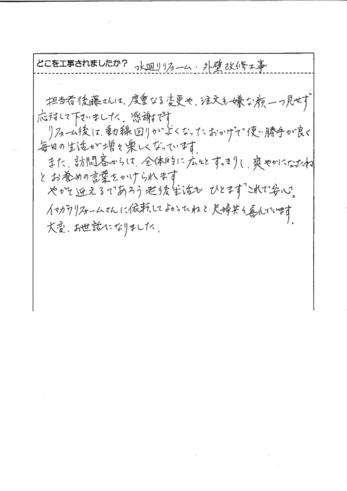 どこを工事されましたか? 水廻りリフォーム・外壁改修工事
担当者後藤さんは、度重なる変更や、注文も嫌な顔一つ見せず
応対して下さいました。感謝です
リフォーム後は、動線回りがよくなったおかげで使い勝手が良く
毎日の生活が増々楽しくなっています。
また、訪問客からは、全体的に広々とすっきりし、爽やかになったね
とお誉めの言葉をかけられます
やがて迎えるであろう老後生活もひとまずこれで安心。
イマガワリフォームさんに依頼してよかったねと夫婦共々喜んでいます。
大変、お世話になりました。